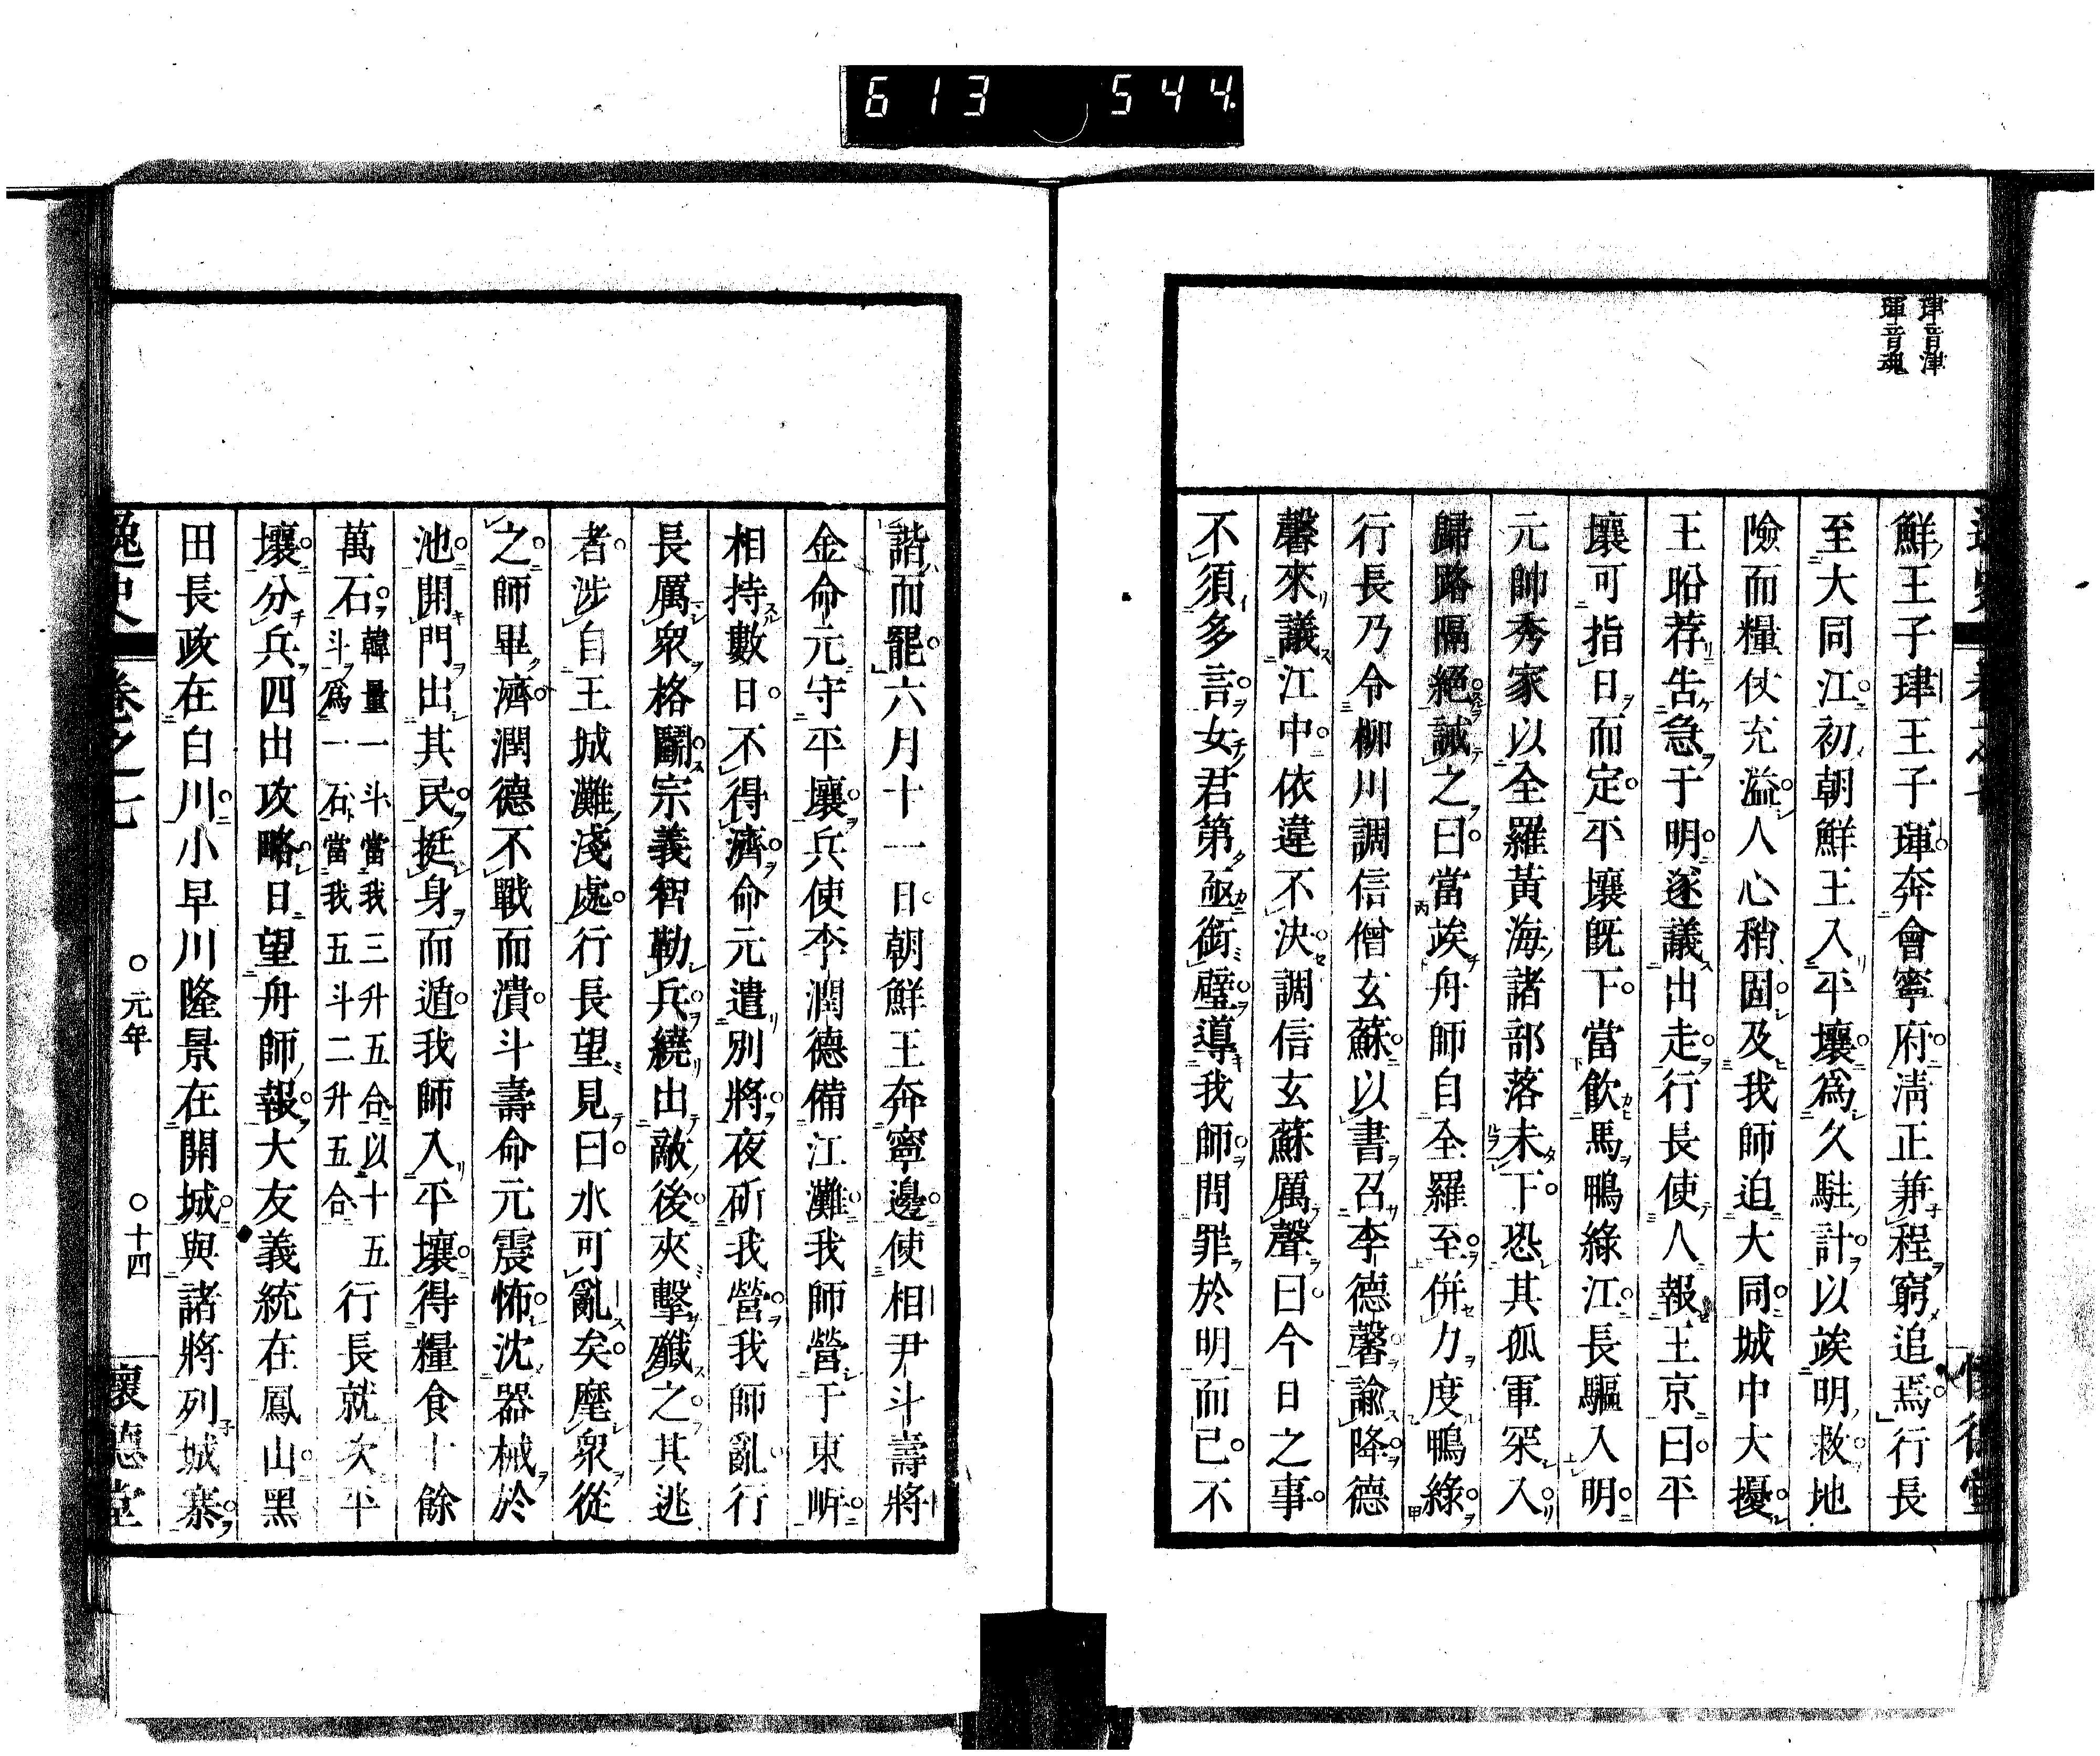 613 544
珒音津
琿音魂
鮮王子珒王子琿奔會寧府淸正兼程窮追焉行長
至大同江初朝鮮王入平壤爲久駐計以竢明救地
險而糧仗充溢人心稍固及我師迫大同城中大擾
王昖荐告急于明遂議出走行長使人報王京曰平
壤可指日而定平壤旣下當飮馬鴨綠江長驅入明
元帥秀家以全羅黃海諸部落未下恐其孤軍罙入
歸路隔絕誡之曰當竢舟師自全羅至併力度鴨綠
行長乃令柳川調信僧玄蘇以書召李德馨諭降德
馨來議江中依違不決調信玄蘇厲聲曰今日之事
不須多言女君第亟銜璧導我師問罪於明而已不
諧而罷六月十一日朝鮮王奔寧邊使相尹斗壽將
金命元守平壤兵使李潤德備江灘我師營于東岍
相持數日不得濟命元遣別將夜斫我營我師亂行
長厲衆格鬭宗義智勒兵繞出敵後夾擊殲之其逃
者涉自王城灘淺處行長望見曰水可亂矣麾衆從
之師畢濟潤德不戰而潰斗壽命元震怖沈器械於
池開門出其民挺身而遁我師入平壤得糧食十餘
萬石韓量一斗當我三升五合以十五斗爲一石當我五斗二升五合行長就次平
壤分兵四出攻略日望舟師報大友義統在鳳山黑
田長政在白川小早川隆景在開城與諸將列城寨
逸史 卷之七 元年 十四 懷德堂